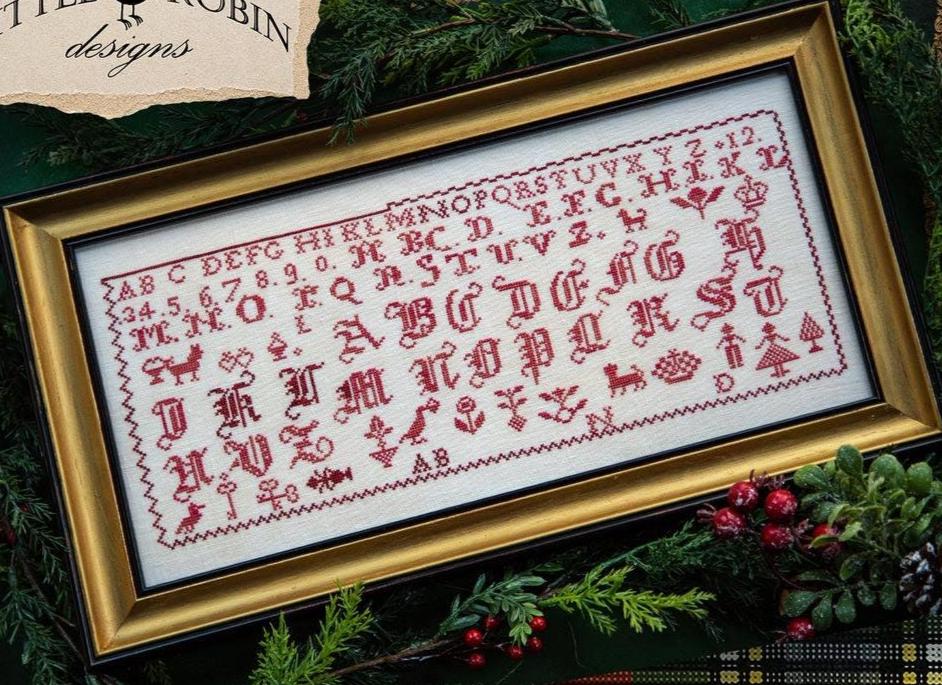 LITTLE ROBIN
designs
AB C DEFG HI KL MNOPQRSTUVXYZ +12.
34.5.6.7.8.9.0. A. BC. D. E.F.G. H.I.K L
M.N.O. P.Q.R.S.T.U.V. Z.
A B C D E F G H
I K L M N O P Q R S T
U V Z
AB